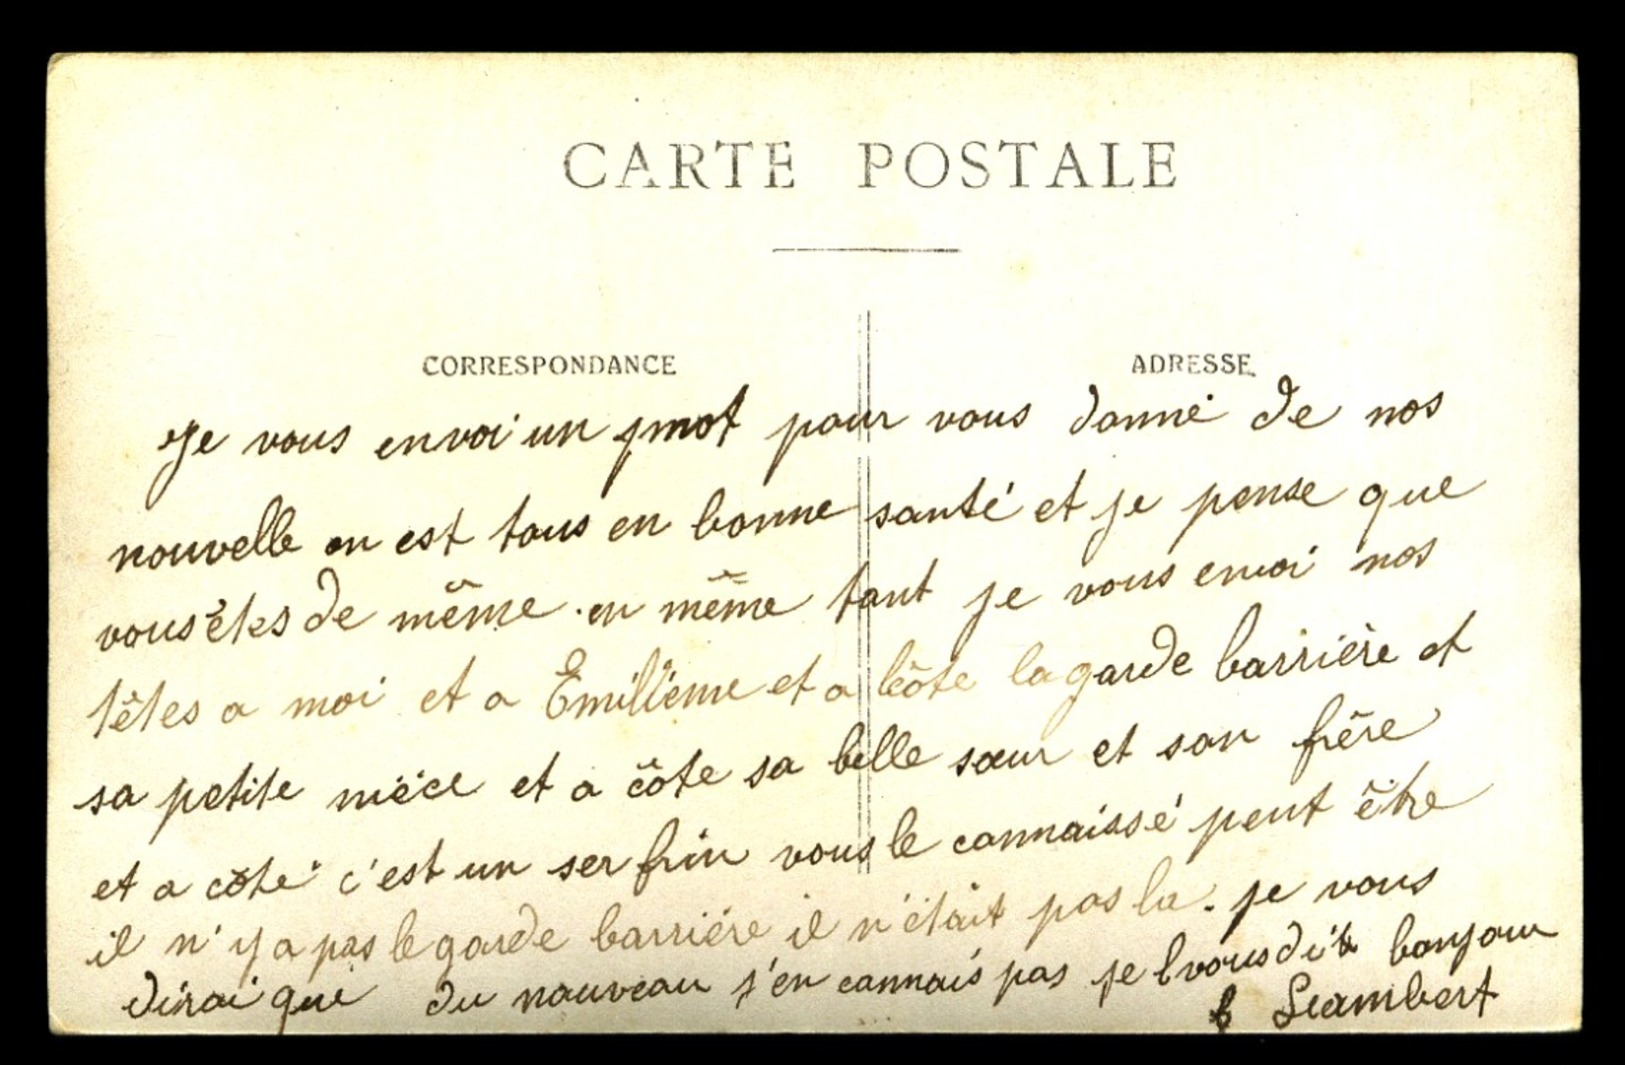 CARTE POSTALE
CORRESPONDANCE
ADRESSE
Je vous envoi un mot pour vous donné de nos
nouvelle on est tous en bonne santé et je pense que
vous êtes de même. en même tant je vous envoi nos
têtes a moi et a Emilienne et a côte la garde barrière et
sa petite nièce et a côte sa belle sœur et son frère
et a côté c'est un serfrin vous le connaissé peut être
il n'y a pas le garde barrière il n'était pas la. je vous
dirai que du nouveau j'en connais pas je vous dit bonjour
Lambert